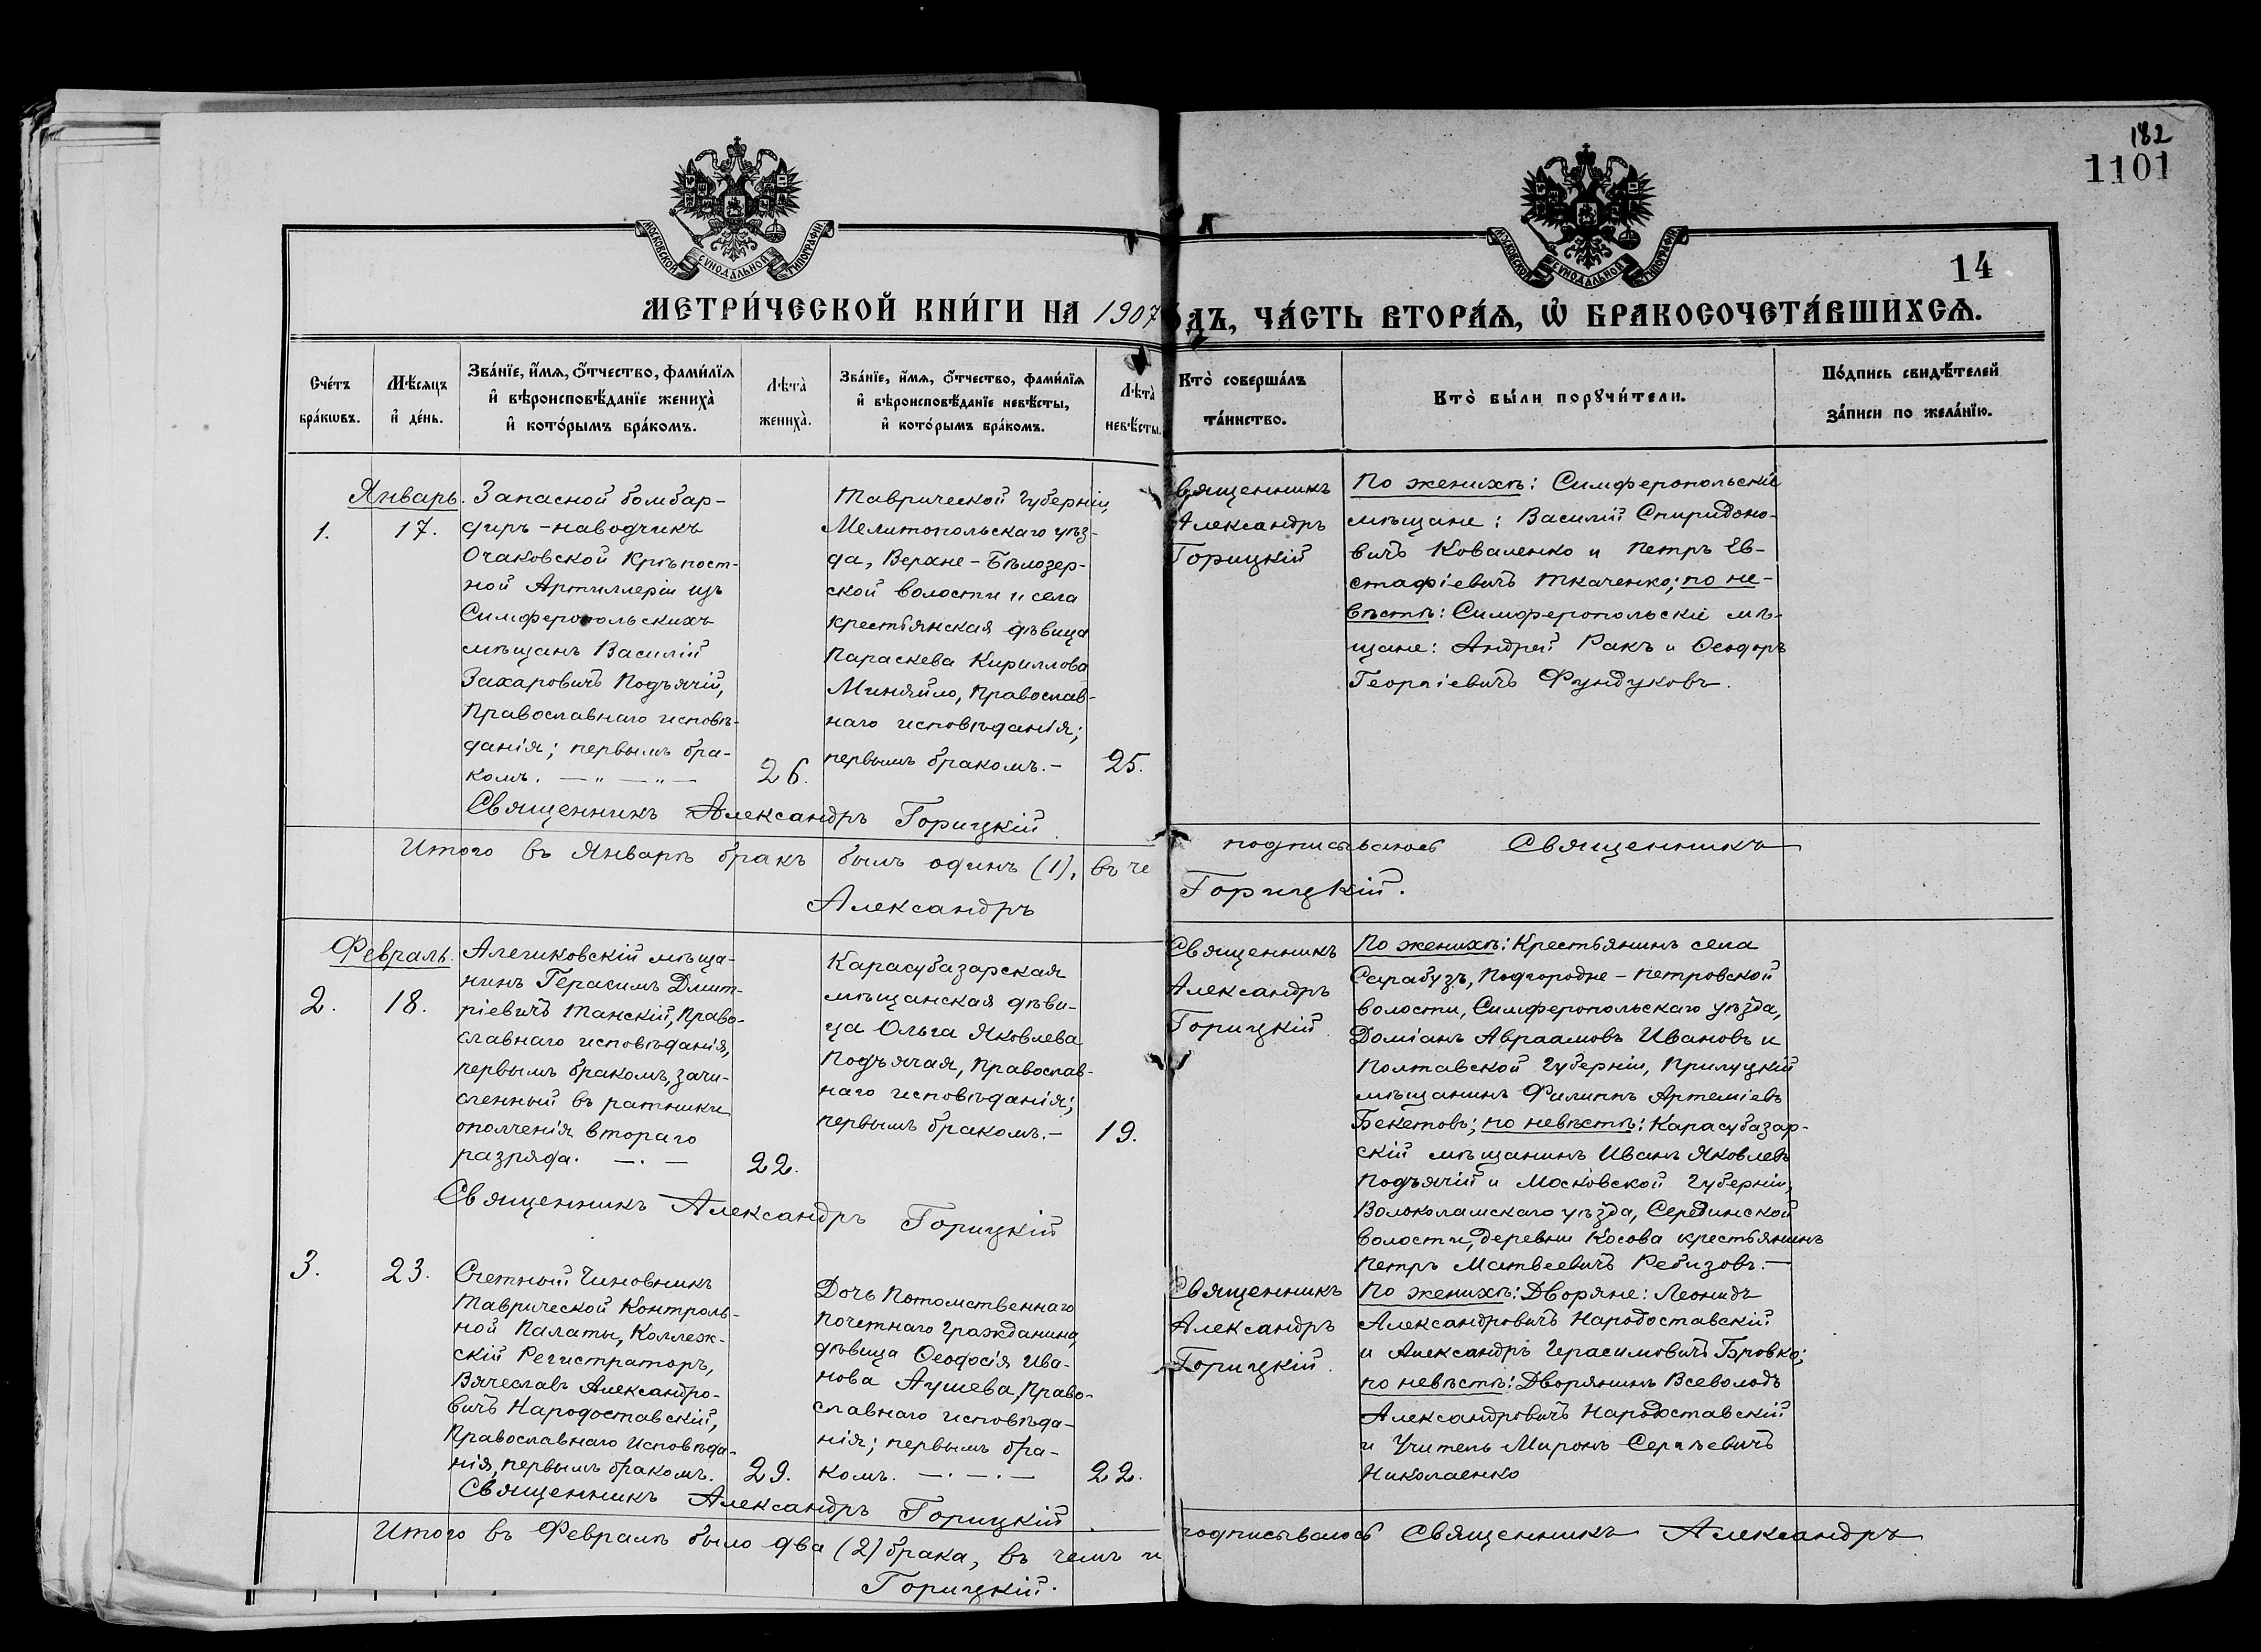 182
1101
МОСКОВСКОЙ СѴНОДАЛЬНОЙ ТИПОГРАФІИ
МОСКОВСКОЙ СѴНОДАЛЬНОЙ ТИПОГРАФІИ
14
МЕТРИ́ЧЕСКОЙ КНИ́ГИ НА 1907
ДЪ, ЧА́СТЬ ВТОРА́Ѧ, Ѡ҆ БРАКОСОЧЕТА́ВШИХСѦ.
Сче́тъ
бра́кѡвъ.
Мѣ́сѧцъ
и҆ де́нь.
Зва́нїе, и҆́мѧ, ѻ҆́тчество, фами́лїѧ
и҆ вѣроисповѣ́данїе жениха̀
и҆ кото́рымъ бра́комъ.
Лѣ́та̀
жениха̀.
Зва́нїе, и҆́мѧ, ѻ҆́тчество, фами́лїѧ
и҆ вѣроисповѣ́данїе невѣ́сты,
и҆ кото́рымъ бра́комъ.
Лѣ́та̀
невѣ́сты.
Кто̀ соверша́лъ
та́инство.
Кто̀ бы́ли порꙋчи́тели.
По́дпись свидѣ́телей
за́писи по жела́нїю.
Январь.
1.
17.
Запасной бомбар-
диръ-наводчикъ
Очаковской Крѣпост-
ной Артиллеріи изъ
Симферопольскихъ
мѣщанъ Василій
Захаровичъ Подъячій,
Православнаго исповѣ-
данія; первымъ бра-
комъ. — " — " —
26.
Таврической Губерніи,
Мелитопольскаго уѣз-
да, Верхне-Бѣлозер-
ской волости и села
крестьянская дѣвица
Параскева Кириллова
Миняйло, Православ-
наго исповѣданія;
первымъ бракомъ.-
25.
Священникъ
Александръ
Горицкій
По женихѣ: Симферопольскіе
мѣщане: Василій Спиридоно-
вичъ Коваленко и Петръ Ев-
стафіевичъ Ткаченко; по не-
вѣстѣ: Симферопольскіе мѣ-
щане: Андрей Ракъ и Ѳеодоръ
Георгіевичъ Фундуковъ.
Священникъ Александръ Горицкій
Итого въ Январѣ бракъ былъ одинъ (1), въ че
подписываюсь Священникъ
Александръ
Горицкій.
Февраль.
2.
18.
Алешковскій мѣща-
нинъ Герасимъ Дмит-
ріевичъ Танскій, Право-
славнаго исповѣданія,
первымъ бракомъ, зачи-
сленный въ ратники
ополченія втораго
разряда. —.—
22.
Карасубазарская
мѣщанская дѣви-
ца Ольга Яковлева
Подъячая, Православ-
наго исповѣданія;
первымъ бракомъ.-
19.
Священникъ
Александръ
Горицкій
По женихѣ: Крестьянинъ села
Сарабузъ, Подгородне-Петровской
волости, Симферопольскаго уѣзда,
Доміанъ Авраамовъ Ивановъ и
Полтавской Губерніи, Прилуцкій
мѣщанинъ Филиппъ Артеміевъ
Бекетовъ; по невѣстѣ: Карасубазар-
скій мѣщанинъ Иванъ Яковлевъ
Подъячій и Московской Губерніи,
Волоколамскаго уѣзда, Серединской
волости, деревни Косова крестьянинъ
Петръ Матвеевичъ Ребизовъ.—
Священникъ Александръ Горицкій
3.
23.
Счетный Чиновникъ
Таврической Контроль-
ной Палаты, Коллеж-
скій Регистраторъ,
Вячеславъ Александро-
вичъ Народоставскій,
Православнаго Исповѣда-
нія, первымъ бракомъ.
29.
Дочь Потомственнаго
Почетнаго Гражданина,
дѣвица Ѳеодосія Ива-
нова Аушева, Право-
славнаго исповѣда-
нія; первымъ бра-
комъ. —.—.—
22.
Священникъ
Александръ
Горицкій
По женихѣ: Дворяне: Леонидъ
Александровичъ Народоставскій
и Александръ Герасимовичъ Бровко;
по невѣстѣ: Дворянинъ Всеволодъ
Александровичъ Народоставскій
и Учитель Миронъ Сергѣевичъ
Николаенко
Священникъ Александръ Горицкій.
Итого въ Февралѣ было два (2) брака, въ чемъ и
подписываюсь Священникъ Александръ
Горицкій.